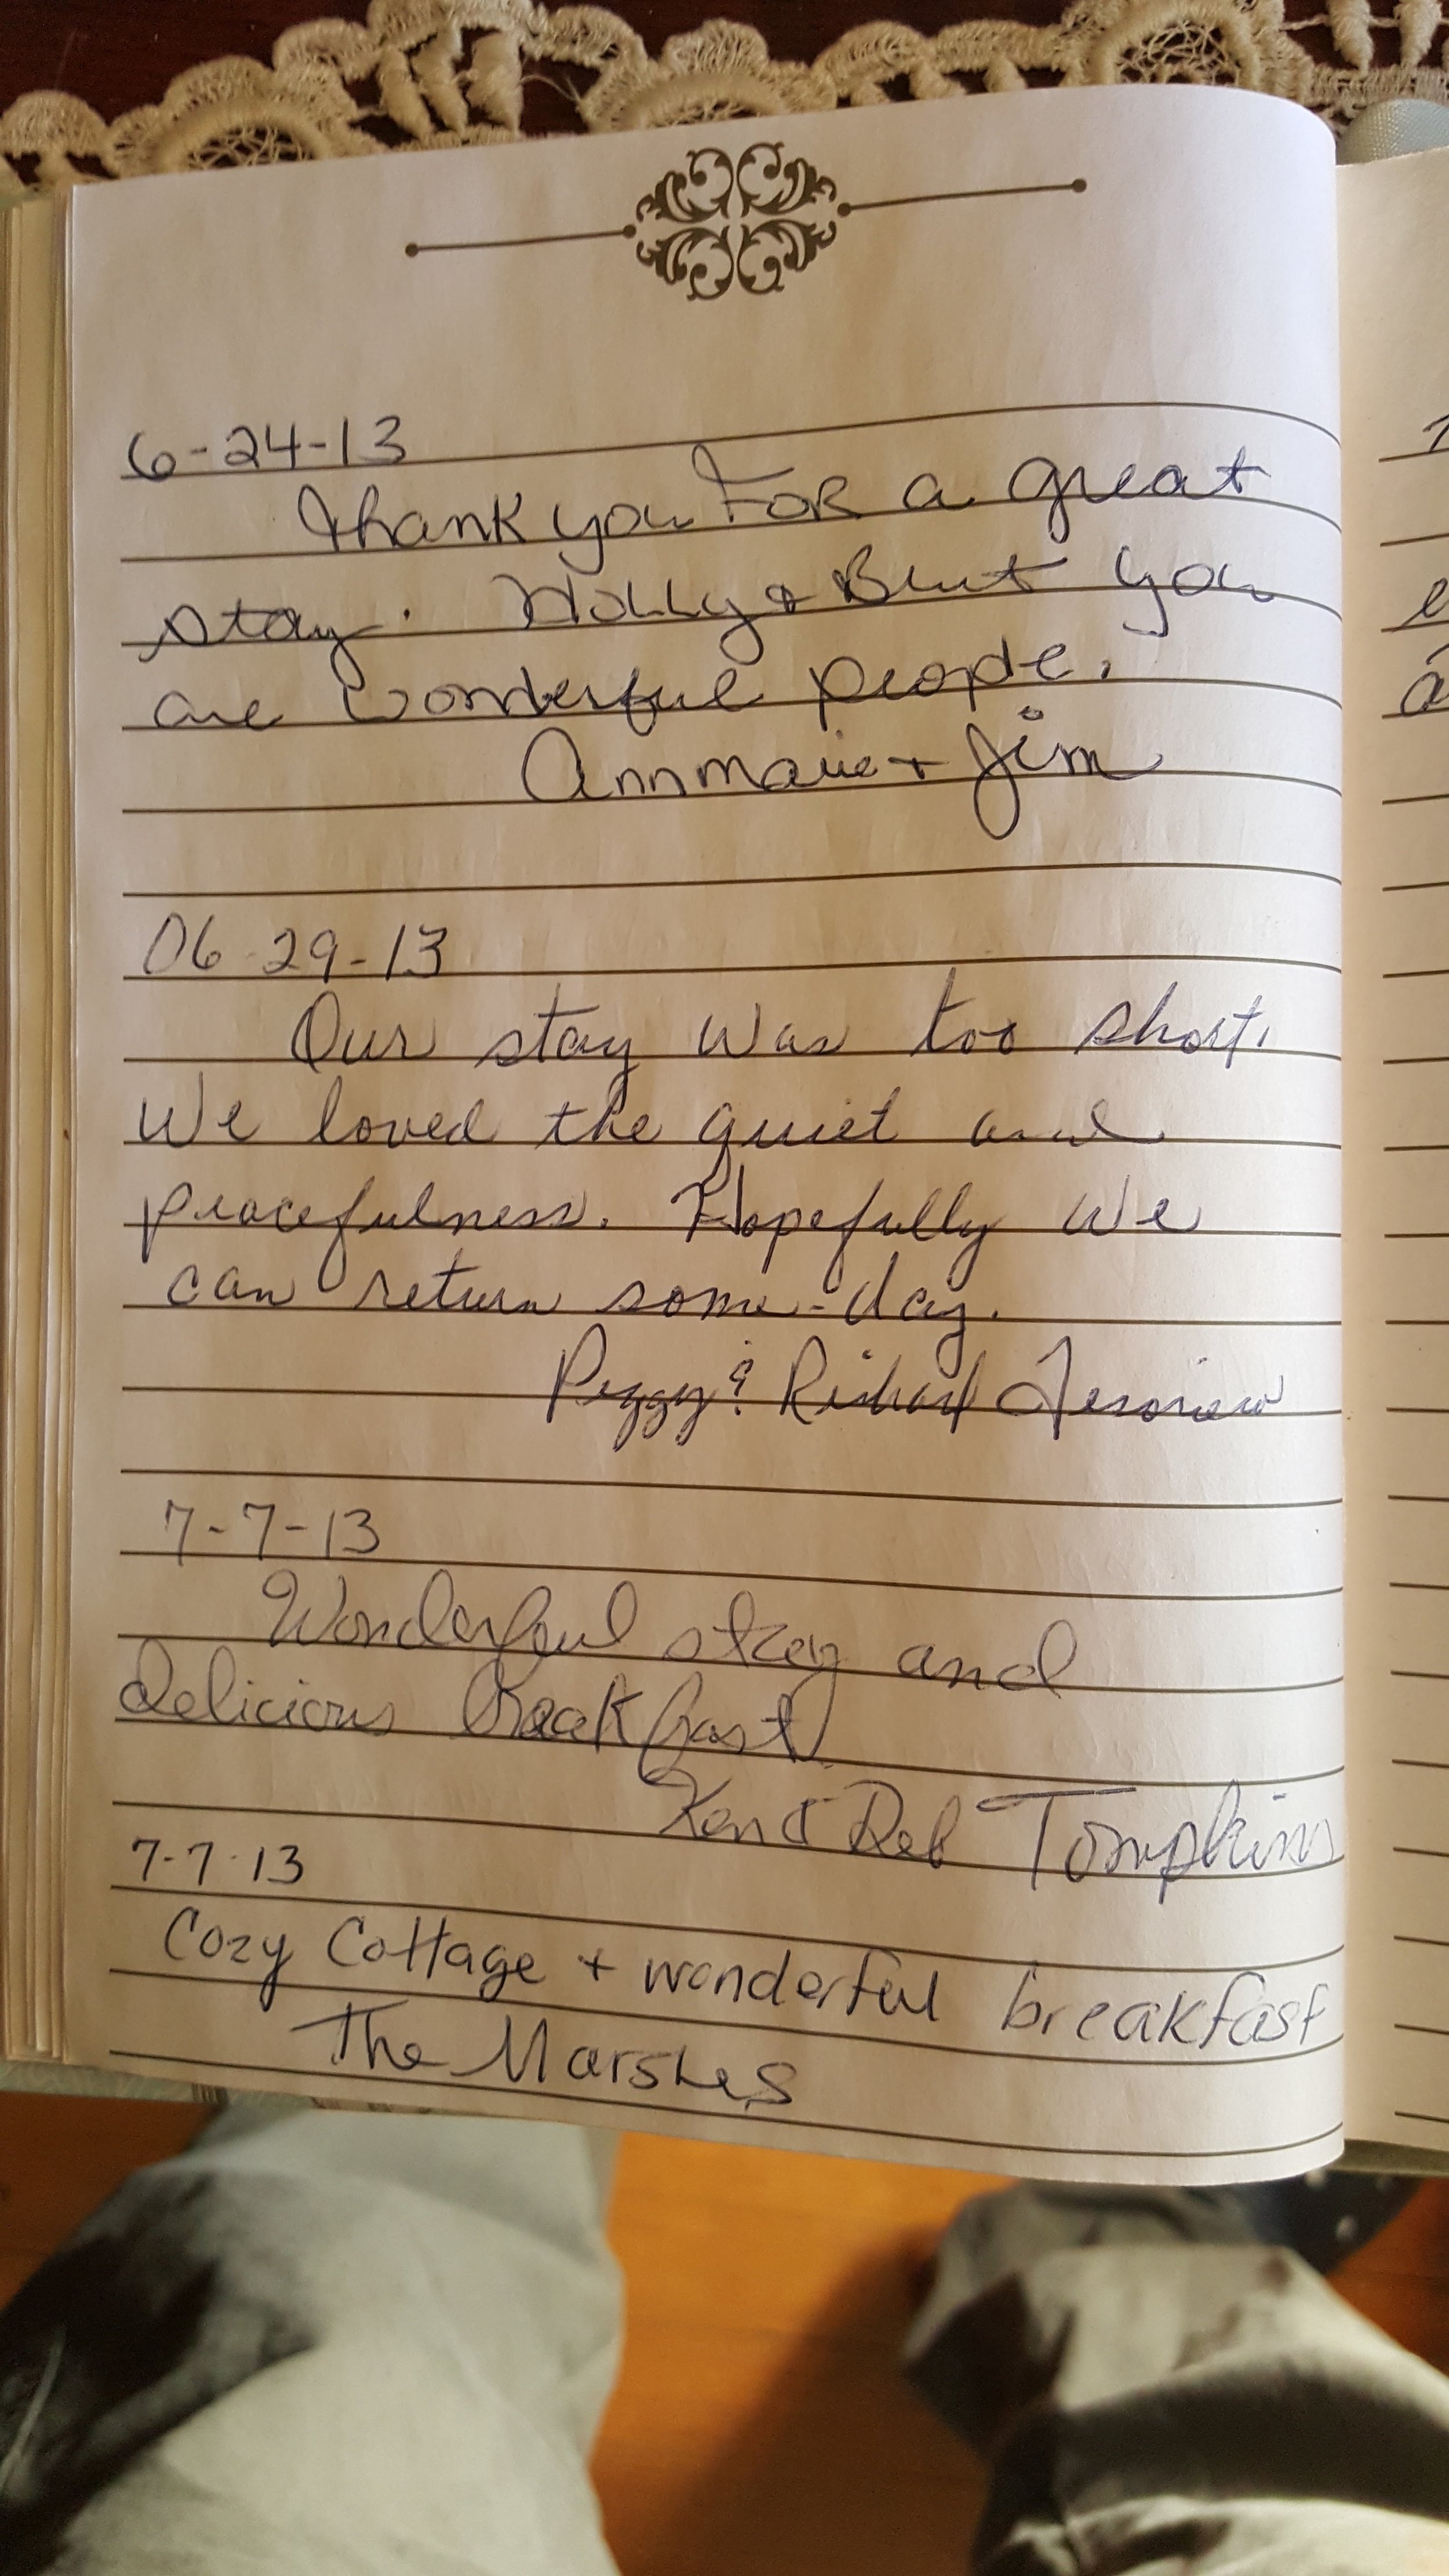 6-24-13
Thank you FOR a great
stay. Holly & Burt you
are wonderful people.
Annmarie + Jim
06-29-13
Our stay was too short.
We loved the quiet and
peacefulness. Hopefully we
can return some-day.
Peggy & Richard
7-7-13
Wonderful stay and
delicious breakfast
Ken & Deb Tompkins
7-7-13
Cozy Cottage + wonderful breakfast
The Marshes